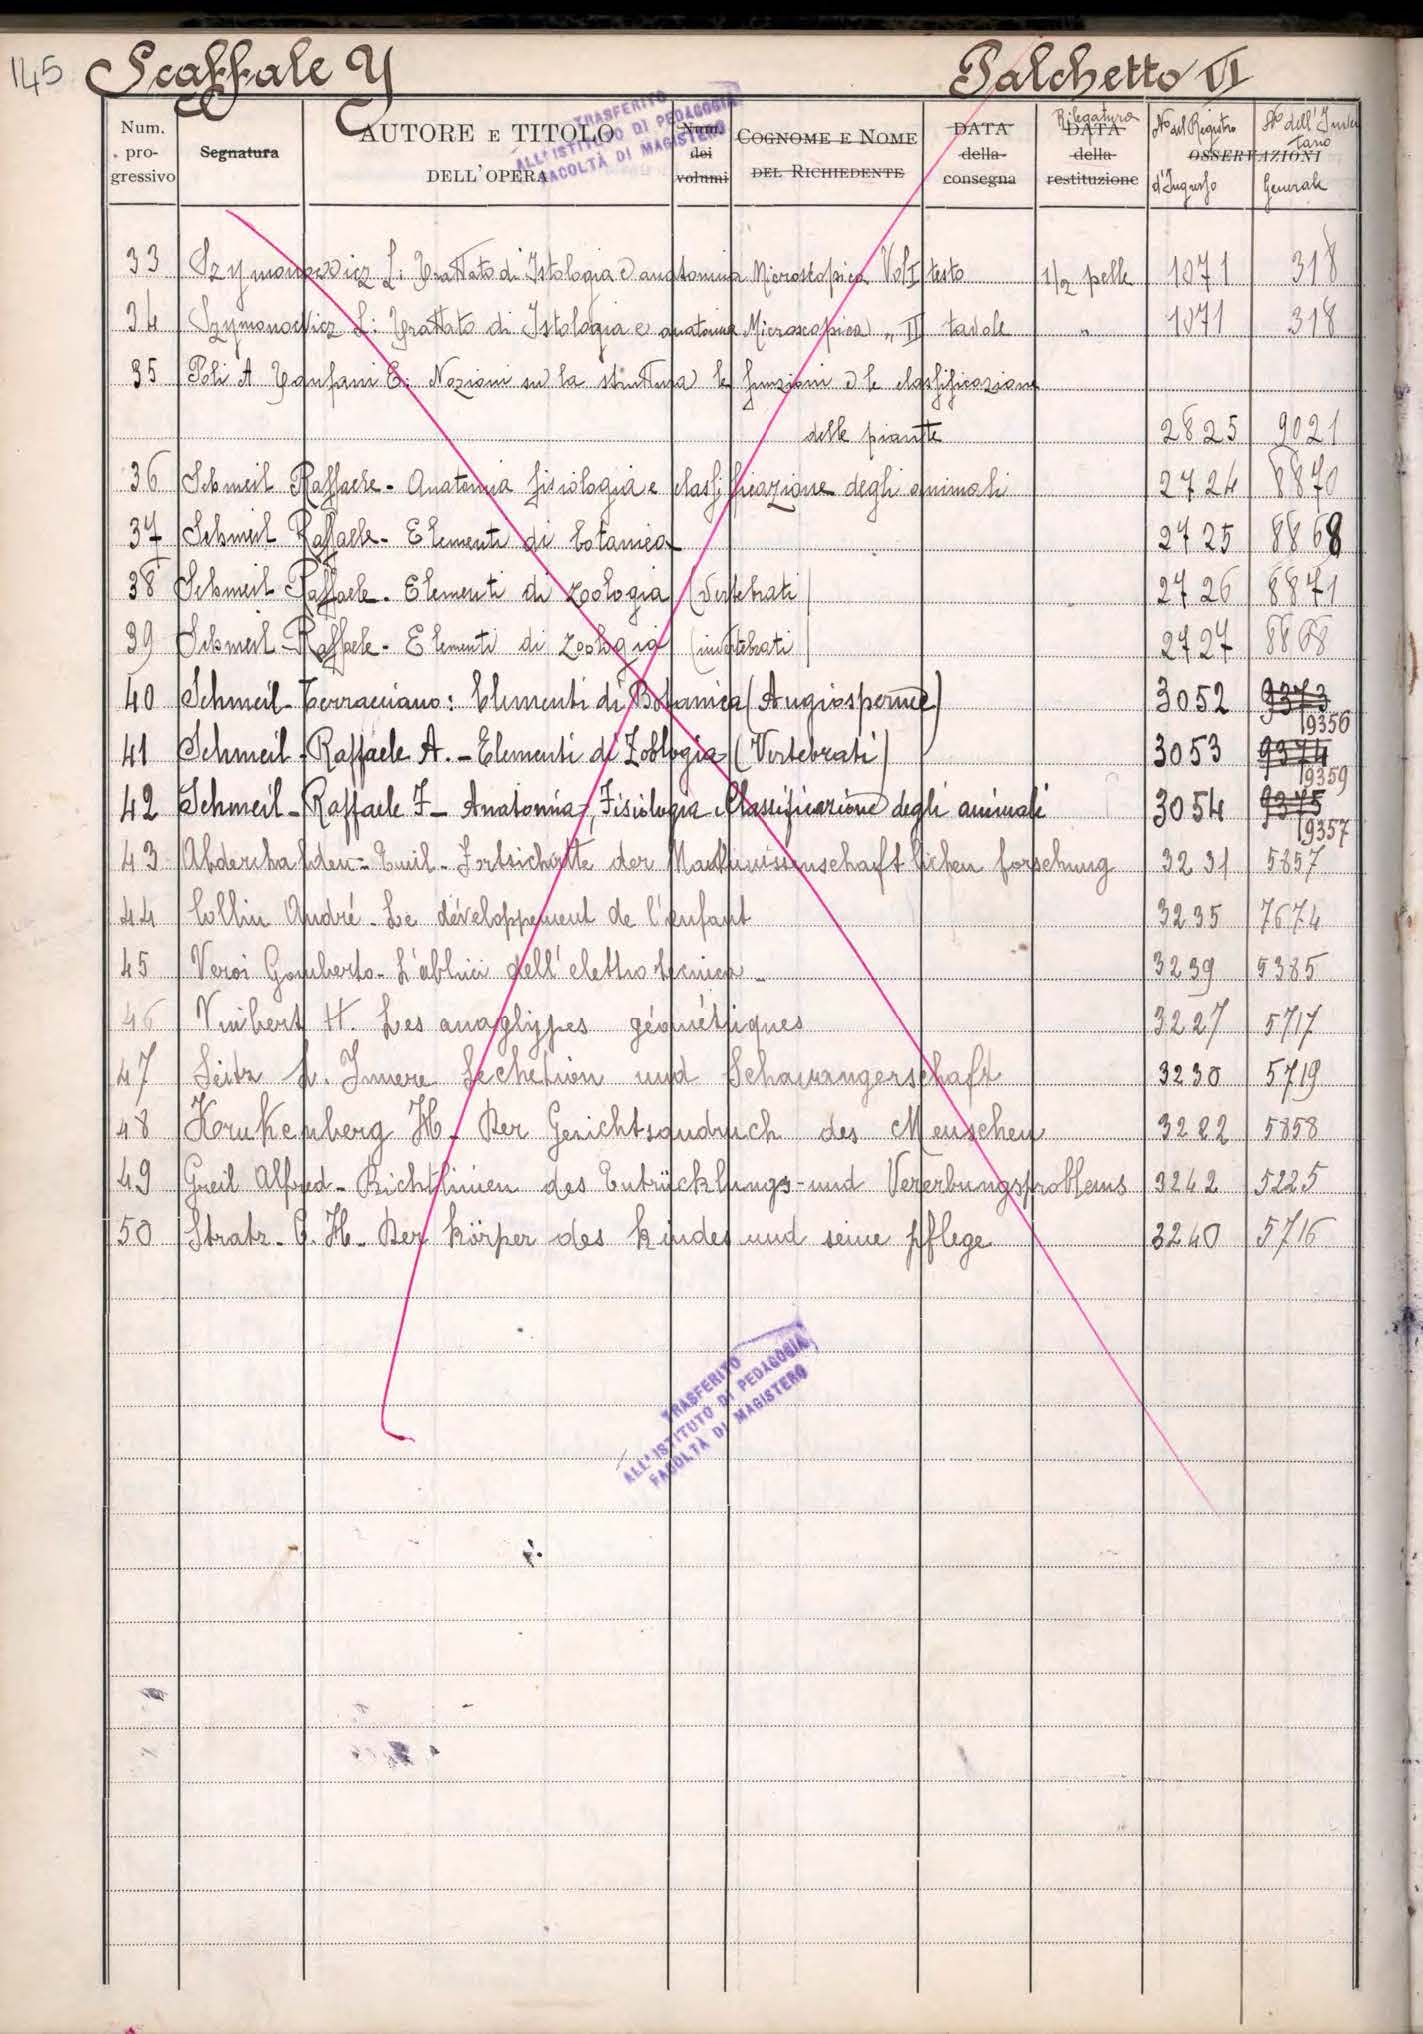 145 Scaffale Y Palchetto VI
TRASFERITO
ALL'ISTITUTO DI PEDAGOGIA
FACOLTÀ DI MAGISTERO
Num. progressivo Segnatura AUTORE E TITOLO DELL'OPERA Num. dei volumi COGNOME E NOME DEL RICHIEDENTE DATA della consegna Rilegatura DATA della restituzione OSSERVAZIONI N° del Registro d'Ingresso N° dell'Inventario Generale
33 Szymonowicz L: Trattato di Istologia e anatomia Microscopica Vol I testo 1/2 pelle 1071 318
34 Szymonowicz L: Trattato di Istologia e anatomia Microscopica „ II tavole „ 1071 318
35 Poli A Tanfani E: Nozioni su la struttura le funzioni e le classificazione
delle piante 2825 9021
36 Schmeil Raffaele - Anatomia fisiologia e classificazione degli animali 2724 8870
37 Schmeil Raffaele - Elementi di botanica 2725 8868
38 Schmeil Raffaele - Elementi di Zoologia (vertebrati) 2726 8871
39 Schmeil - Raffaele - Elementi di Zoologia (invertebrati) 2727 8868
40 Schmeil - Terracciano: Elementi di Botanica (Angiosperme) 3052 9373
9356
41 Schmeil - Raffaele A. - Elementi di Zoologia (Vertebrati) 3053 9374
9359
42 Schmeil - Raffaele F - Anatomia, Fisiologia e Classificazione degli animali 3054 9375
9357
43 Abderhalden - Emil - der forschung 3231 5857
44 Collin André - Le développement de l'enfant 3235 7674
45 Veroi Gomberto - L'abbici dell'elettrotecnica 3239 5385
46 Vuibert H. Les anaglyphes géométriques 3227 5717
47 Seitz L. Innere Sechetion und Schawangerschaft 3230 5719
48 Krukenberg H - Der Gesichtsaudruch des Menschen 3222 5858
49 Greil Alfred - Richtlinien des Entrücklungs - und Vererbungsproblems 3242 5225
50 Stratz - C. H - Der körper des kindes und seine pflege 3240 5716
TRASFERITO
ALL'ISTITUTO DI PEDAGOGIA
FACOLTÀ DI MAGISTERO